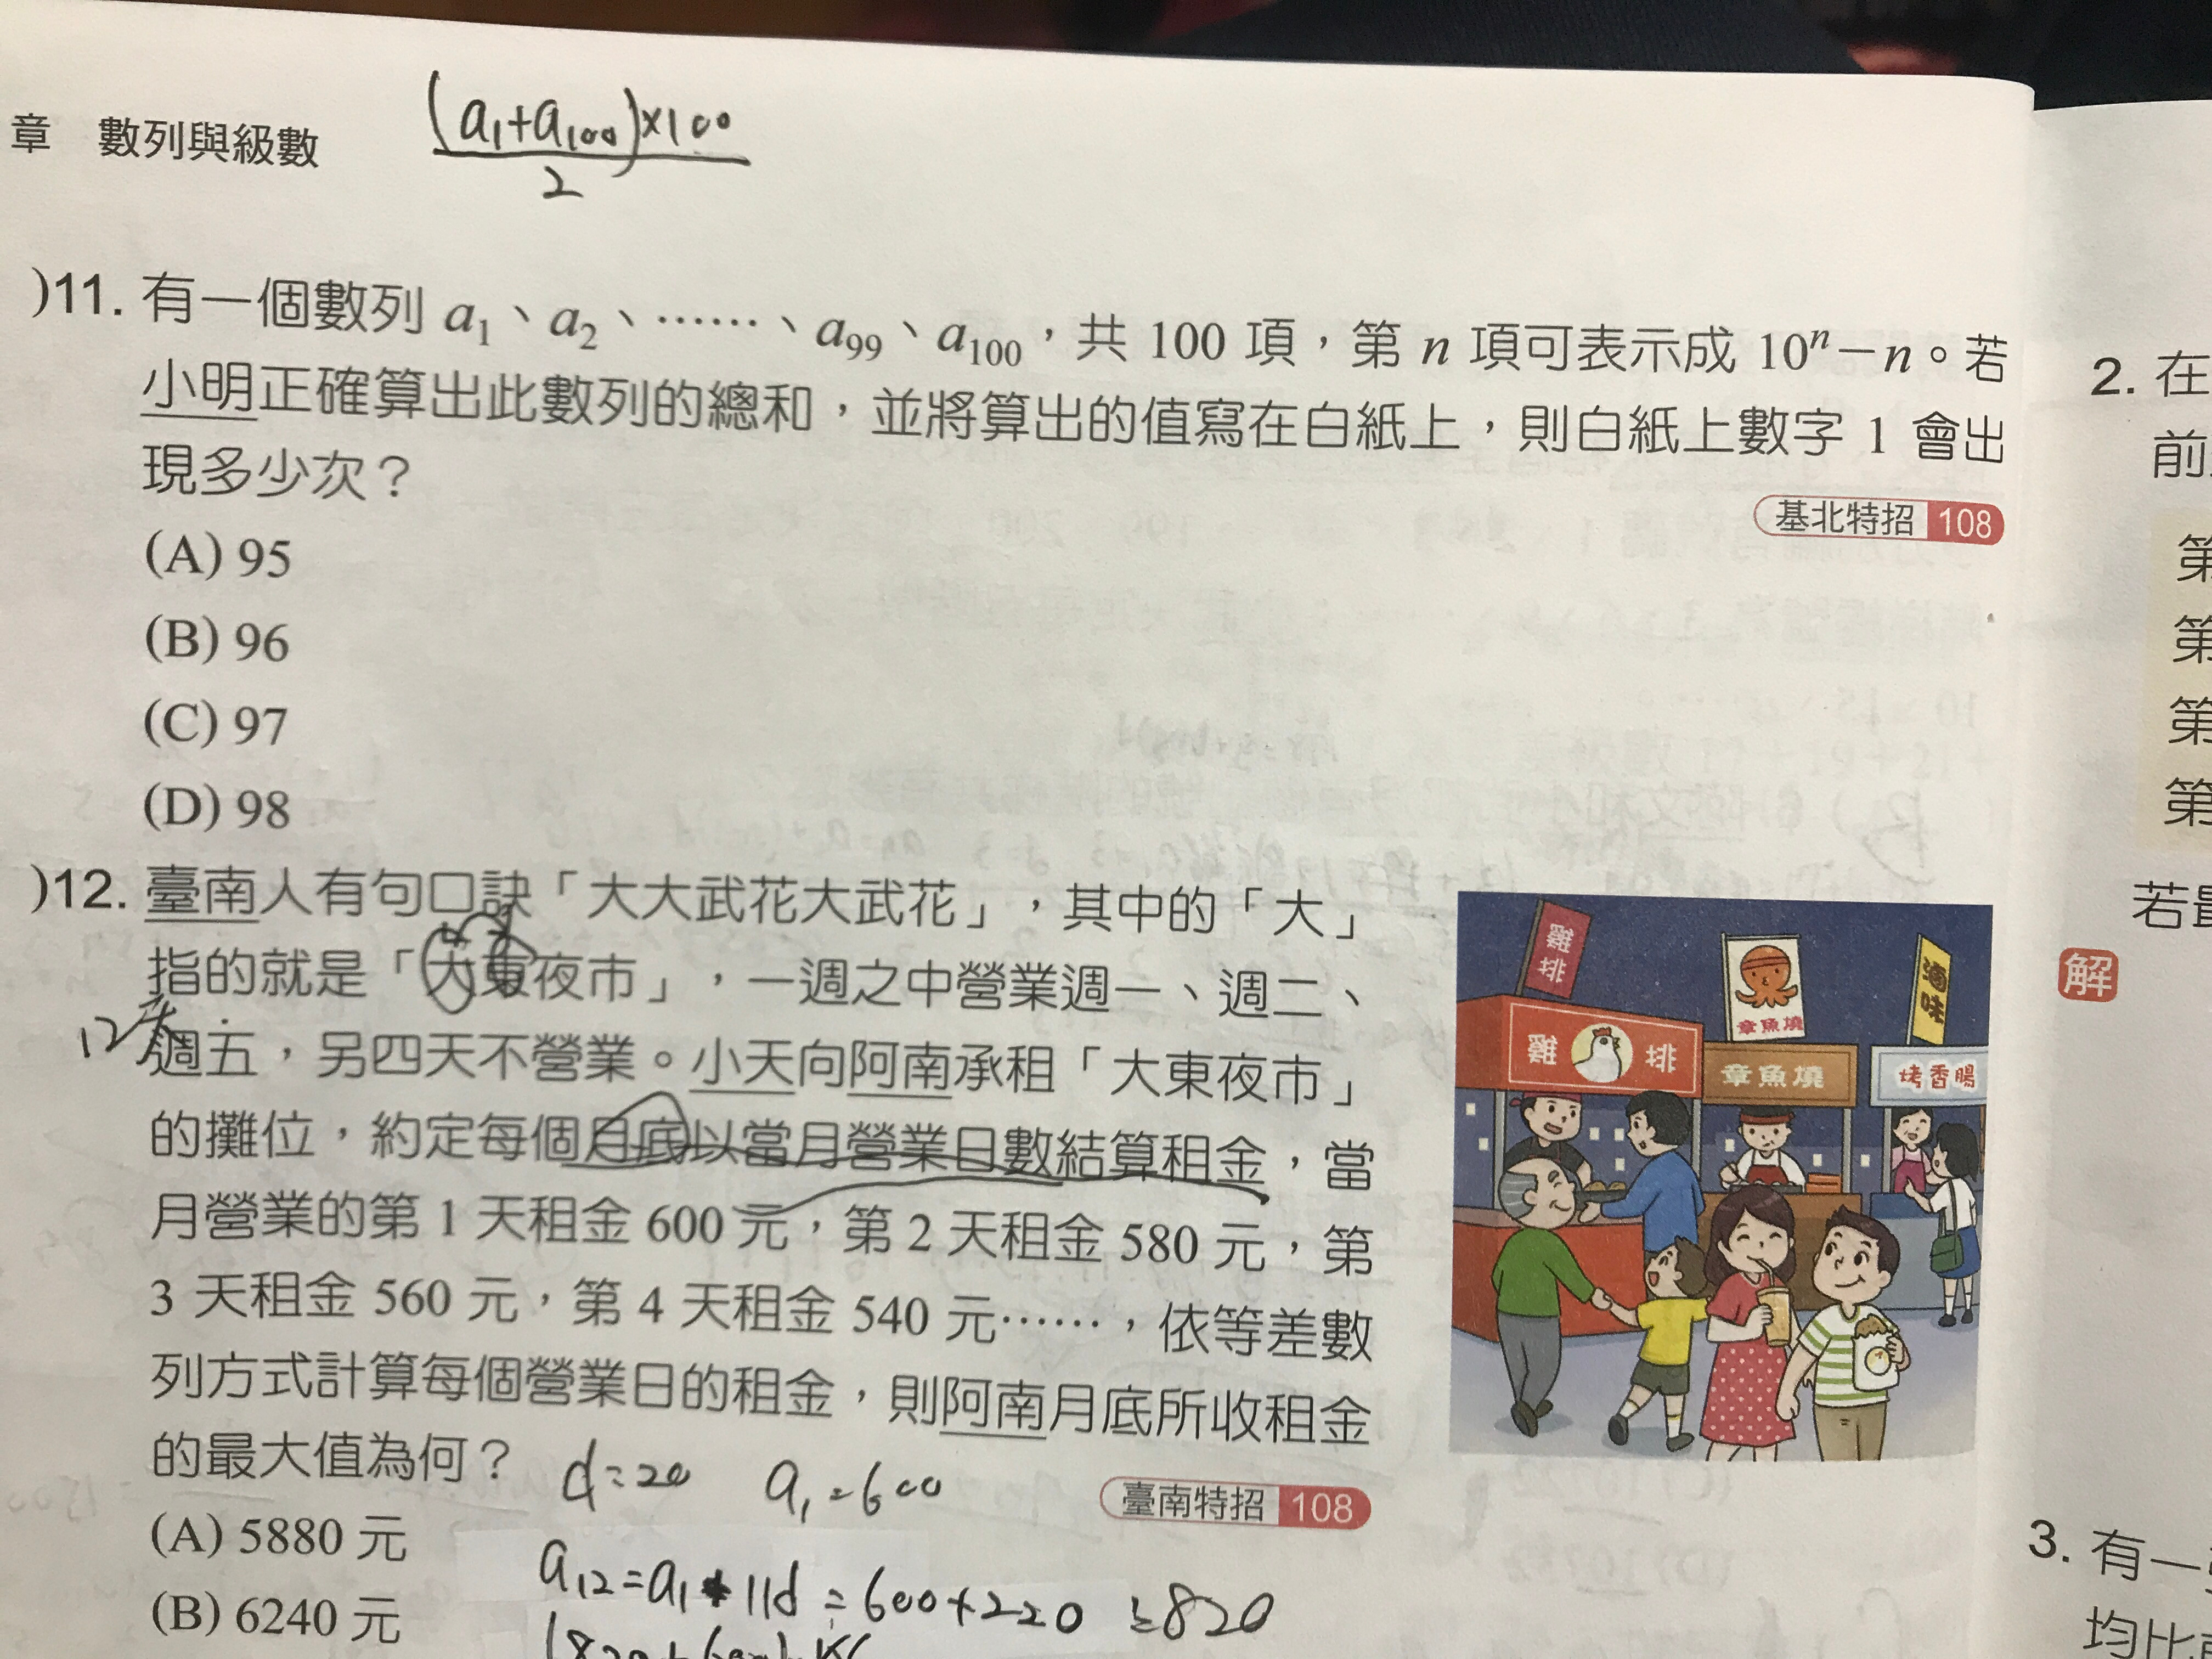 章 數列與級數
(a₁+a₁₀₀)×100
2
)11. 有一個數列 a₁、a₂、……、a₉₉、a₁₀₀,共 100 項,第 n 項可表示成 10ⁿ-n。若
小明正確算出此數列的總和,並將算出的值寫在白紙上,則白紙上數字 1 會出
現多少次?
基北特招 108
(A) 95
(B) 96
(C) 97
(D) 98
)12. 臺南人有句口訣「大大武花大武花」,其中的「大」
指的就是「大東夜市」,一週之中營業週一、週二、
12天
週五,另四天不營業。小天向阿南承租「大東夜市」
的攤位,約定每個月底以當月營業日數結算租金,當
月營業的第 1 天租金 600 元,第 2 天租金 580 元,第
3 天租金 560 元,第 4 天租金 540 元……,依等差數
列方式計算每個營業日的租金,則阿南月底所收租金
的最大值為何?
d=20 a₁=600
臺南特招 108
(A) 5880 元
a₁₂=a₁+11d=600+220=820
(B) 6240 元
雞排
章魚燒
滷味
雞排
章魚燒
烤香腸
2. 在
前
第
第
第
第
若
解
3. 有一
均比